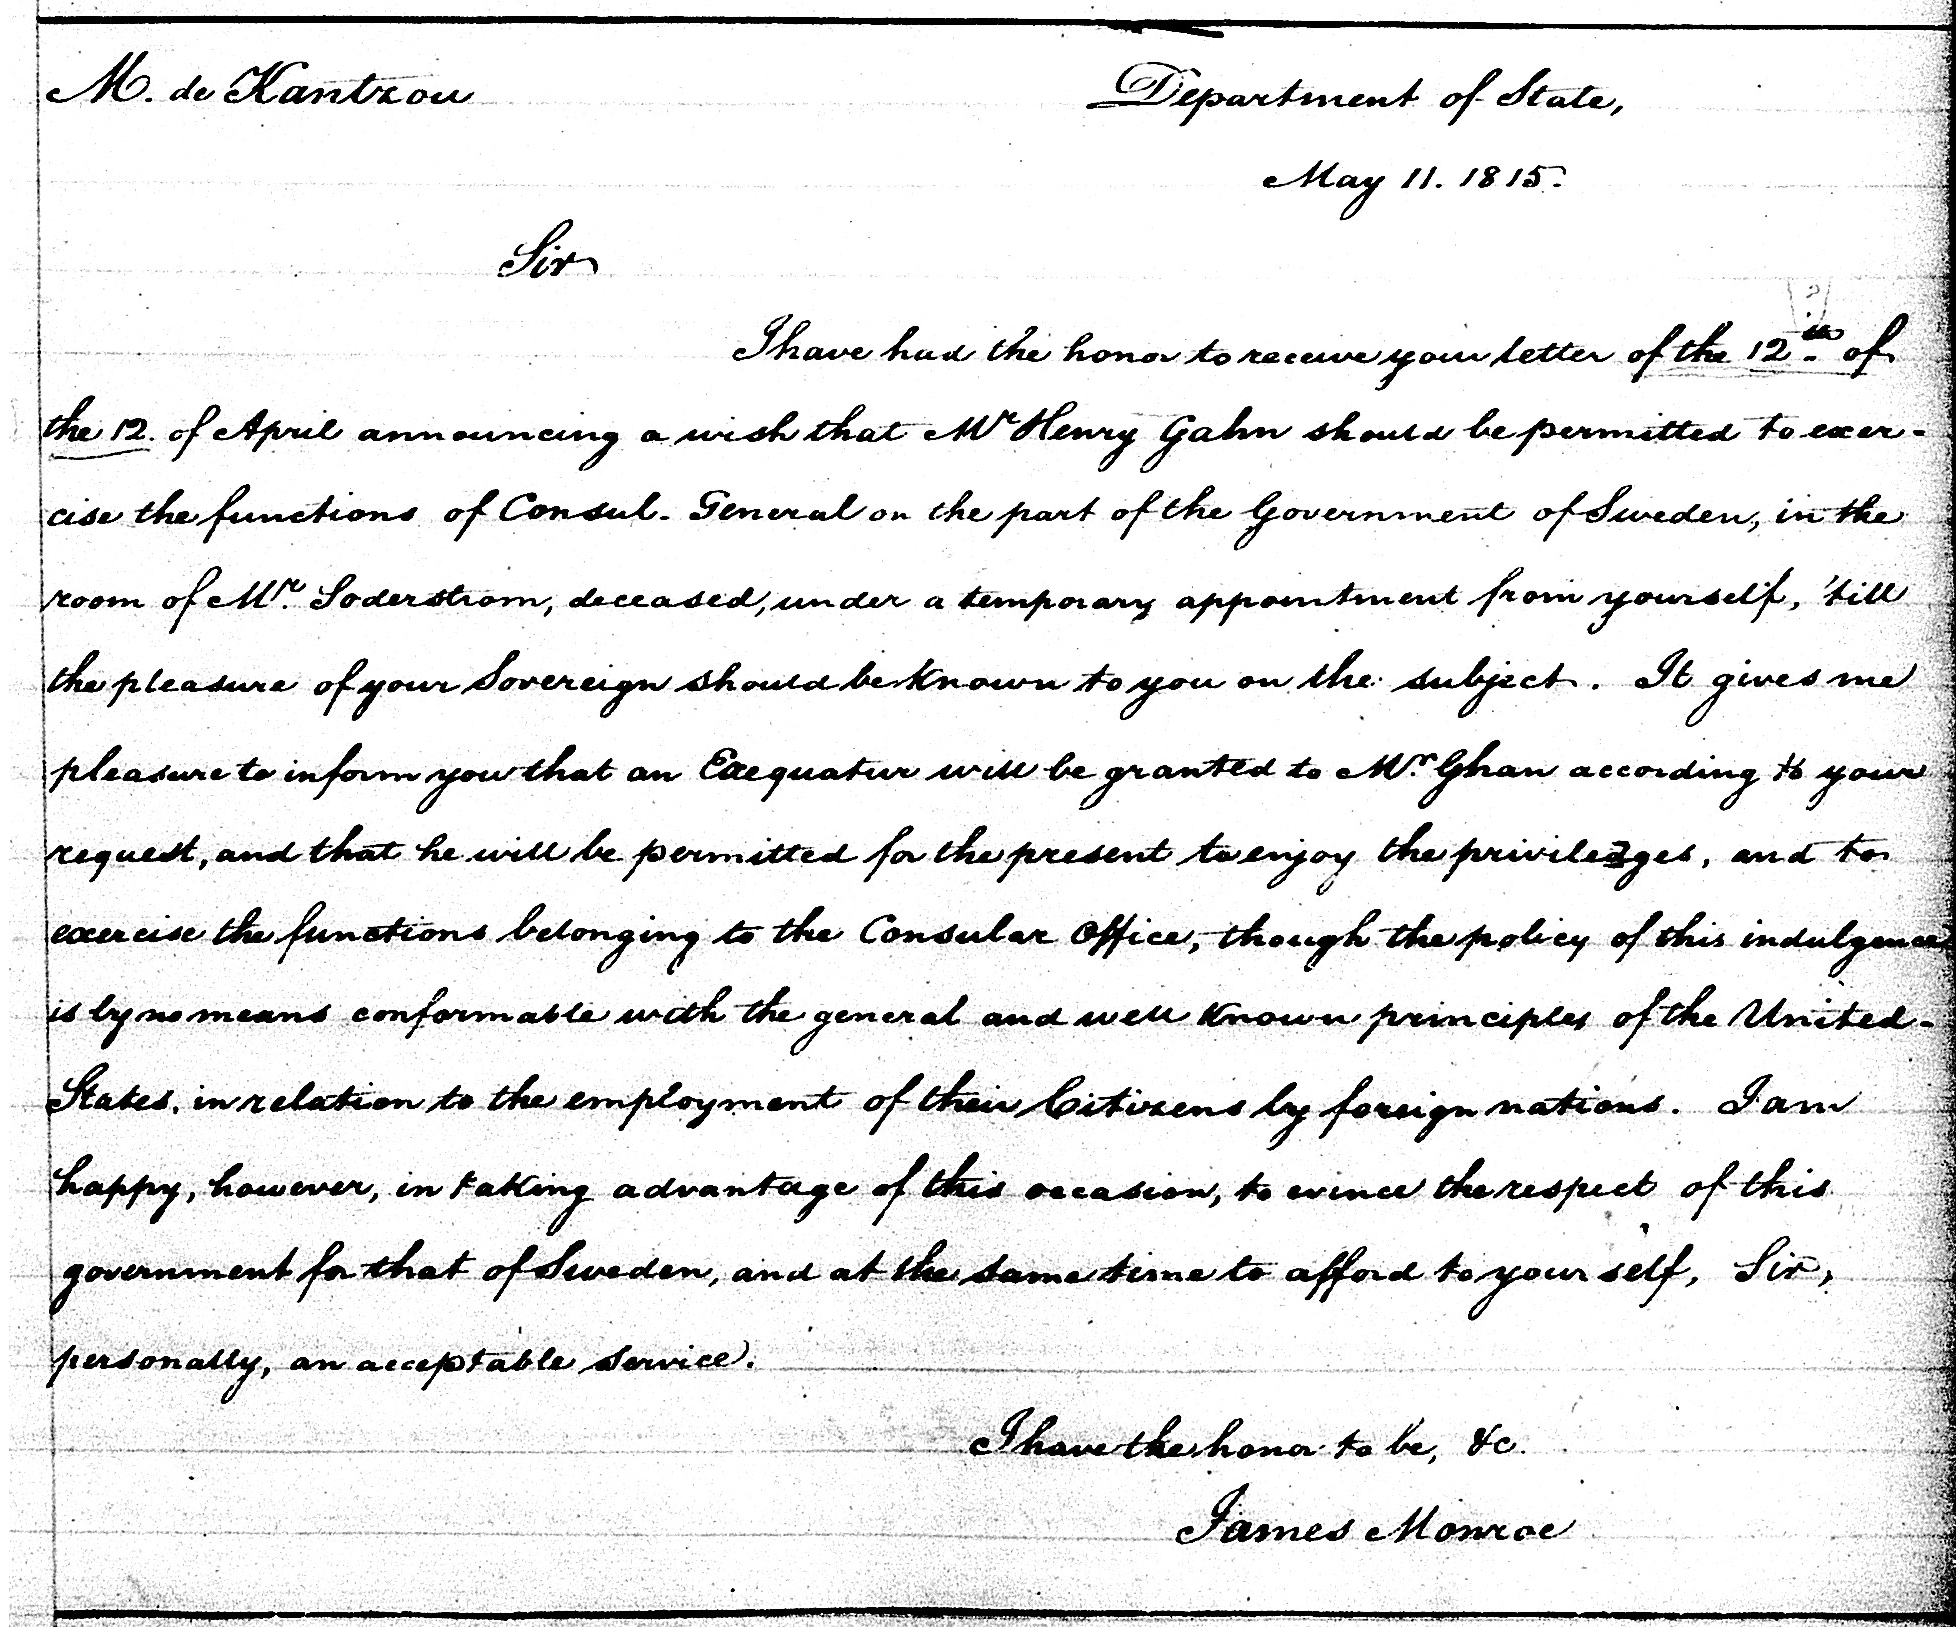 M. de Kantzou
Department of State,
May 11. 1815.
Sir
I have had the honor to receive your letter of the 12th of
the 12. of April announcing a wish that Mr Henry Gahn should be permitted to exer-
cise the functions of Consul-General on the part of the Government of Sweden, in the
room of Mr. Soderstrom, deceased, under a temporary appointment from yourself, 'till
the pleasure of your Sovereign should be known to you on the subject. It gives me
pleasure to inform you that an Exequatur will be granted to Mr. Ghan according to your
request, and that he will be permitted for the present to enjoy the priviledges, and to
exercise the functions belonging to the Consular Office, though the policy of this indulgence
is by no means conformable with the general and well known principles of the United-
States, in relation to the employment of their Citizens by foreign nations. I am
happy, however, in taking advantage of this occasion, to evince the respect of this
government for that of Sweden, and at the same time to afford to yourself, Sir,
personally, an acceptable service.
I have the honor to be, &c.
James Monroe